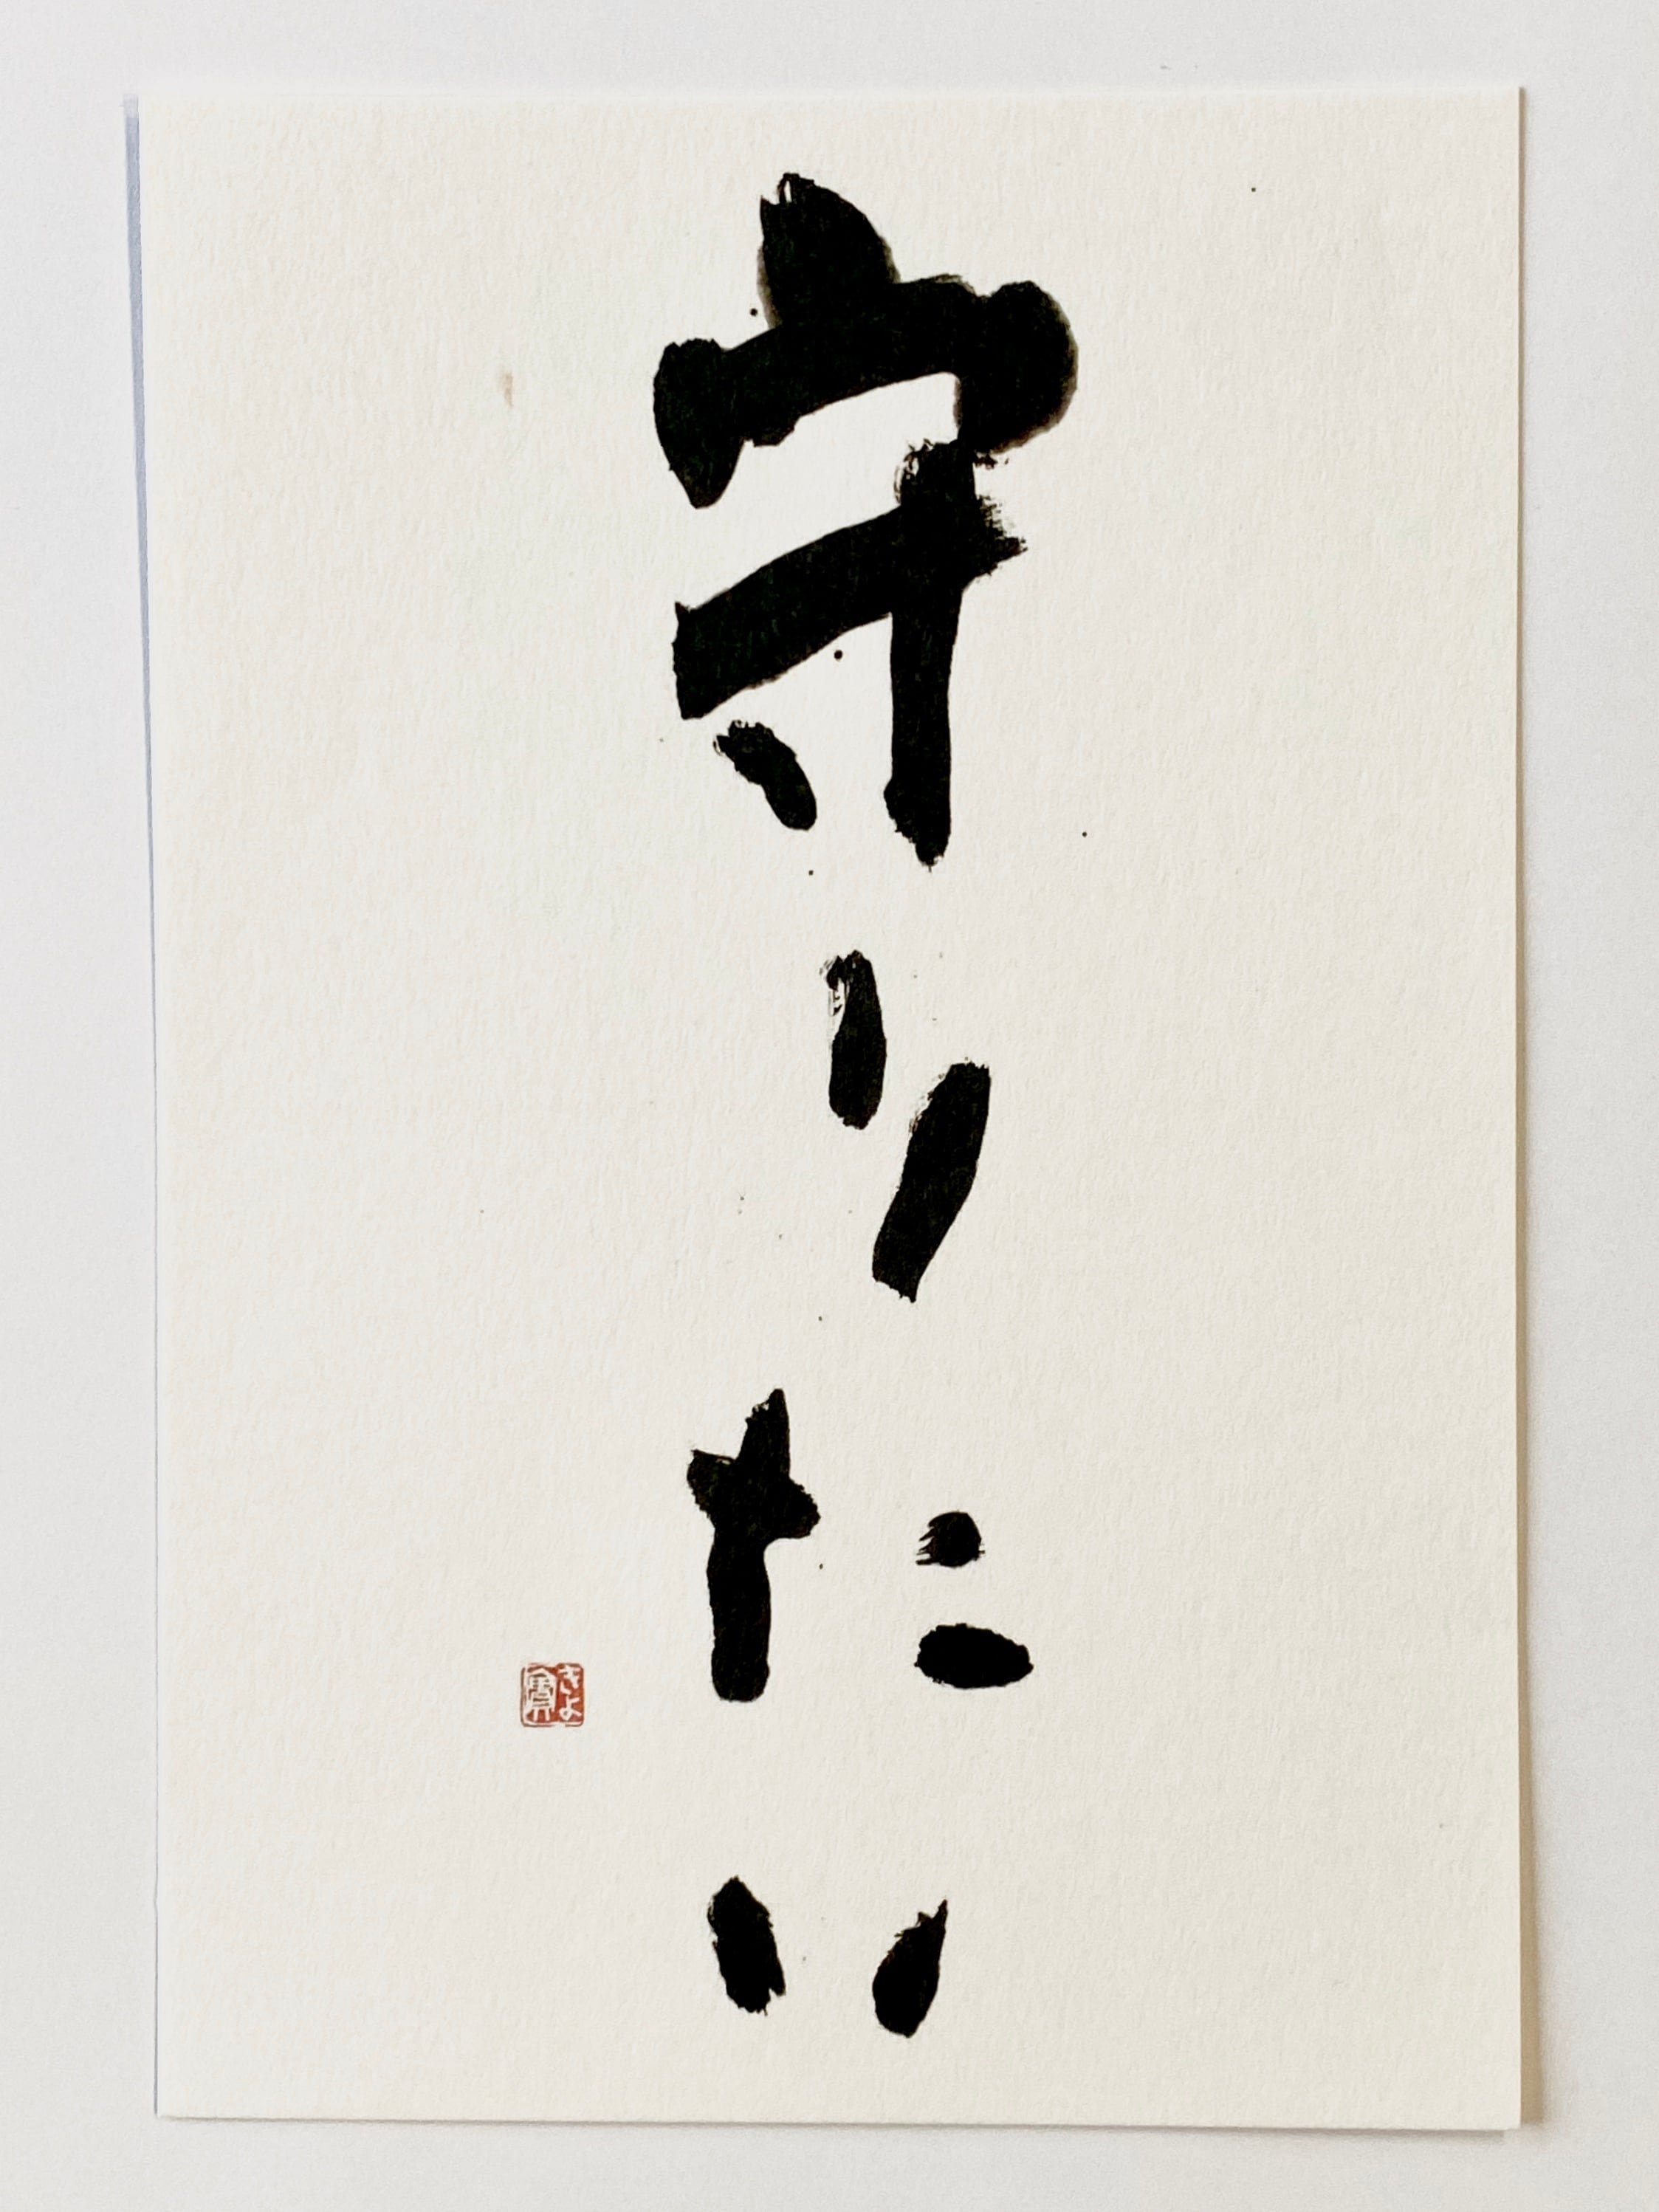 守りたい
きよ